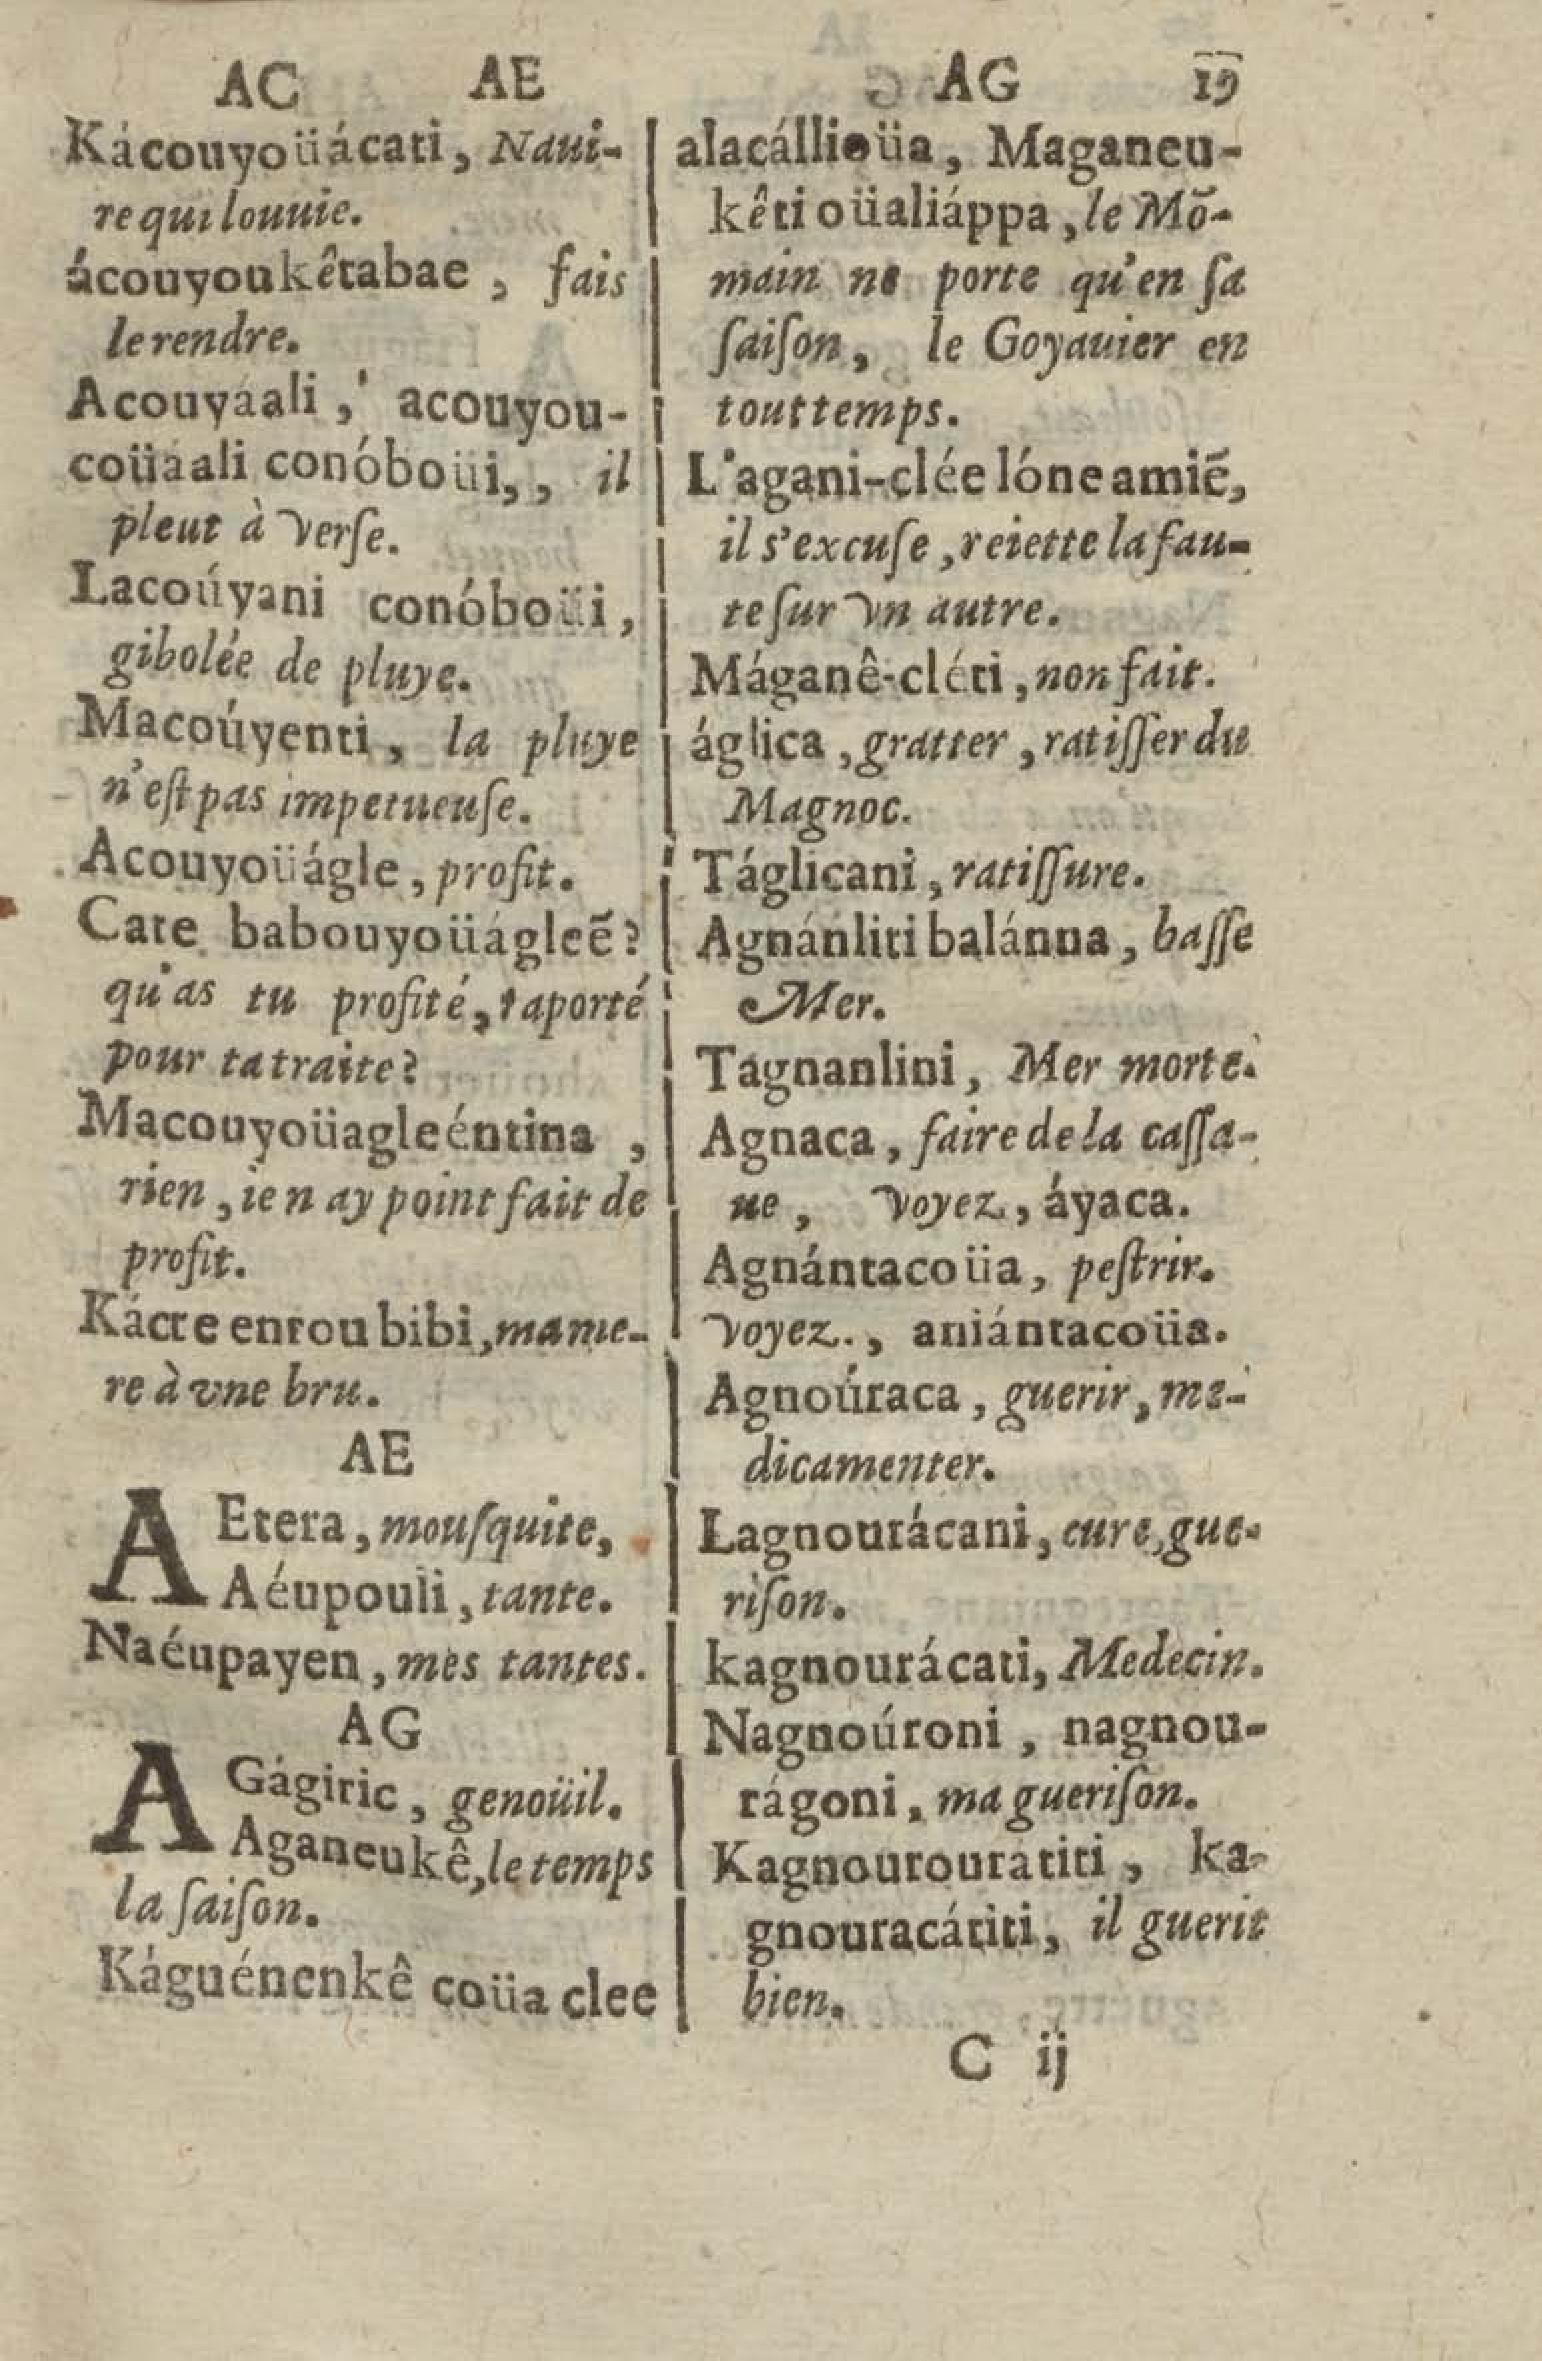 AC AE AG 19
Kácouyoüácati, Naui-
re qui louuie.
ácouyoukêtabae, fais
le rendre.
Acouyáali, acouyou-
coüáali conóboüi,, il
pleut à verſe.
Lacoúyani conóboüi,
gibolée de pluye.
Macoúyenti, la pluye
n'eſt pas impetueuſe.
Acouyoüágle, profit.
Cate babouyoüágleẽ?
qu'as tu profité, raporté
pour ta traite?
Macouyoüagleéntina,
rien, ie n ay point fait de
profit.
Kácreentou bibi, ma me-
re à vne bru.
AE
AEtera, mouſquite,
Aéupouli, tante.
Naéupayen, mes tantes.
AG
AGágiric, genoüil.
Aganeukê, le temps
la ſaiſon.
Káguénenkê coüa clee
alacállioüa, Maganeu-
kêti oüaliáppa, le Mõ-
main ne porte qu'en ſa
ſaiſon, le Goyauier en
tout temps.
L'agani-clée lóne amiẽ,
il s'excuſe, reiette la fau-
te ſur vn autre.
Máganê-cléti, non fait.
áglica, gratter, ratiſſer du
Magnoc.
Táglicani, ratiſſure.
Agnánliti balánna, baſſe
Mer.
Tágnanlini, Mer morte.
Agnaca, faire de la caſſa-
ue, voyez, áyaca.
Agnántacoüa, peſtrir.
voyez., aniántacoüa.
Agnoúraca, guerir, me-
dicamenter.
Lagnourácani, cure, gue-
riſon.
kagnourácati, Medecin.
Nagnoúroni, nagnou-
rágoni, ma gueriſon.
Kagnourouratiti, ka-
gnouracátiti, il guerit
bien.
C ij